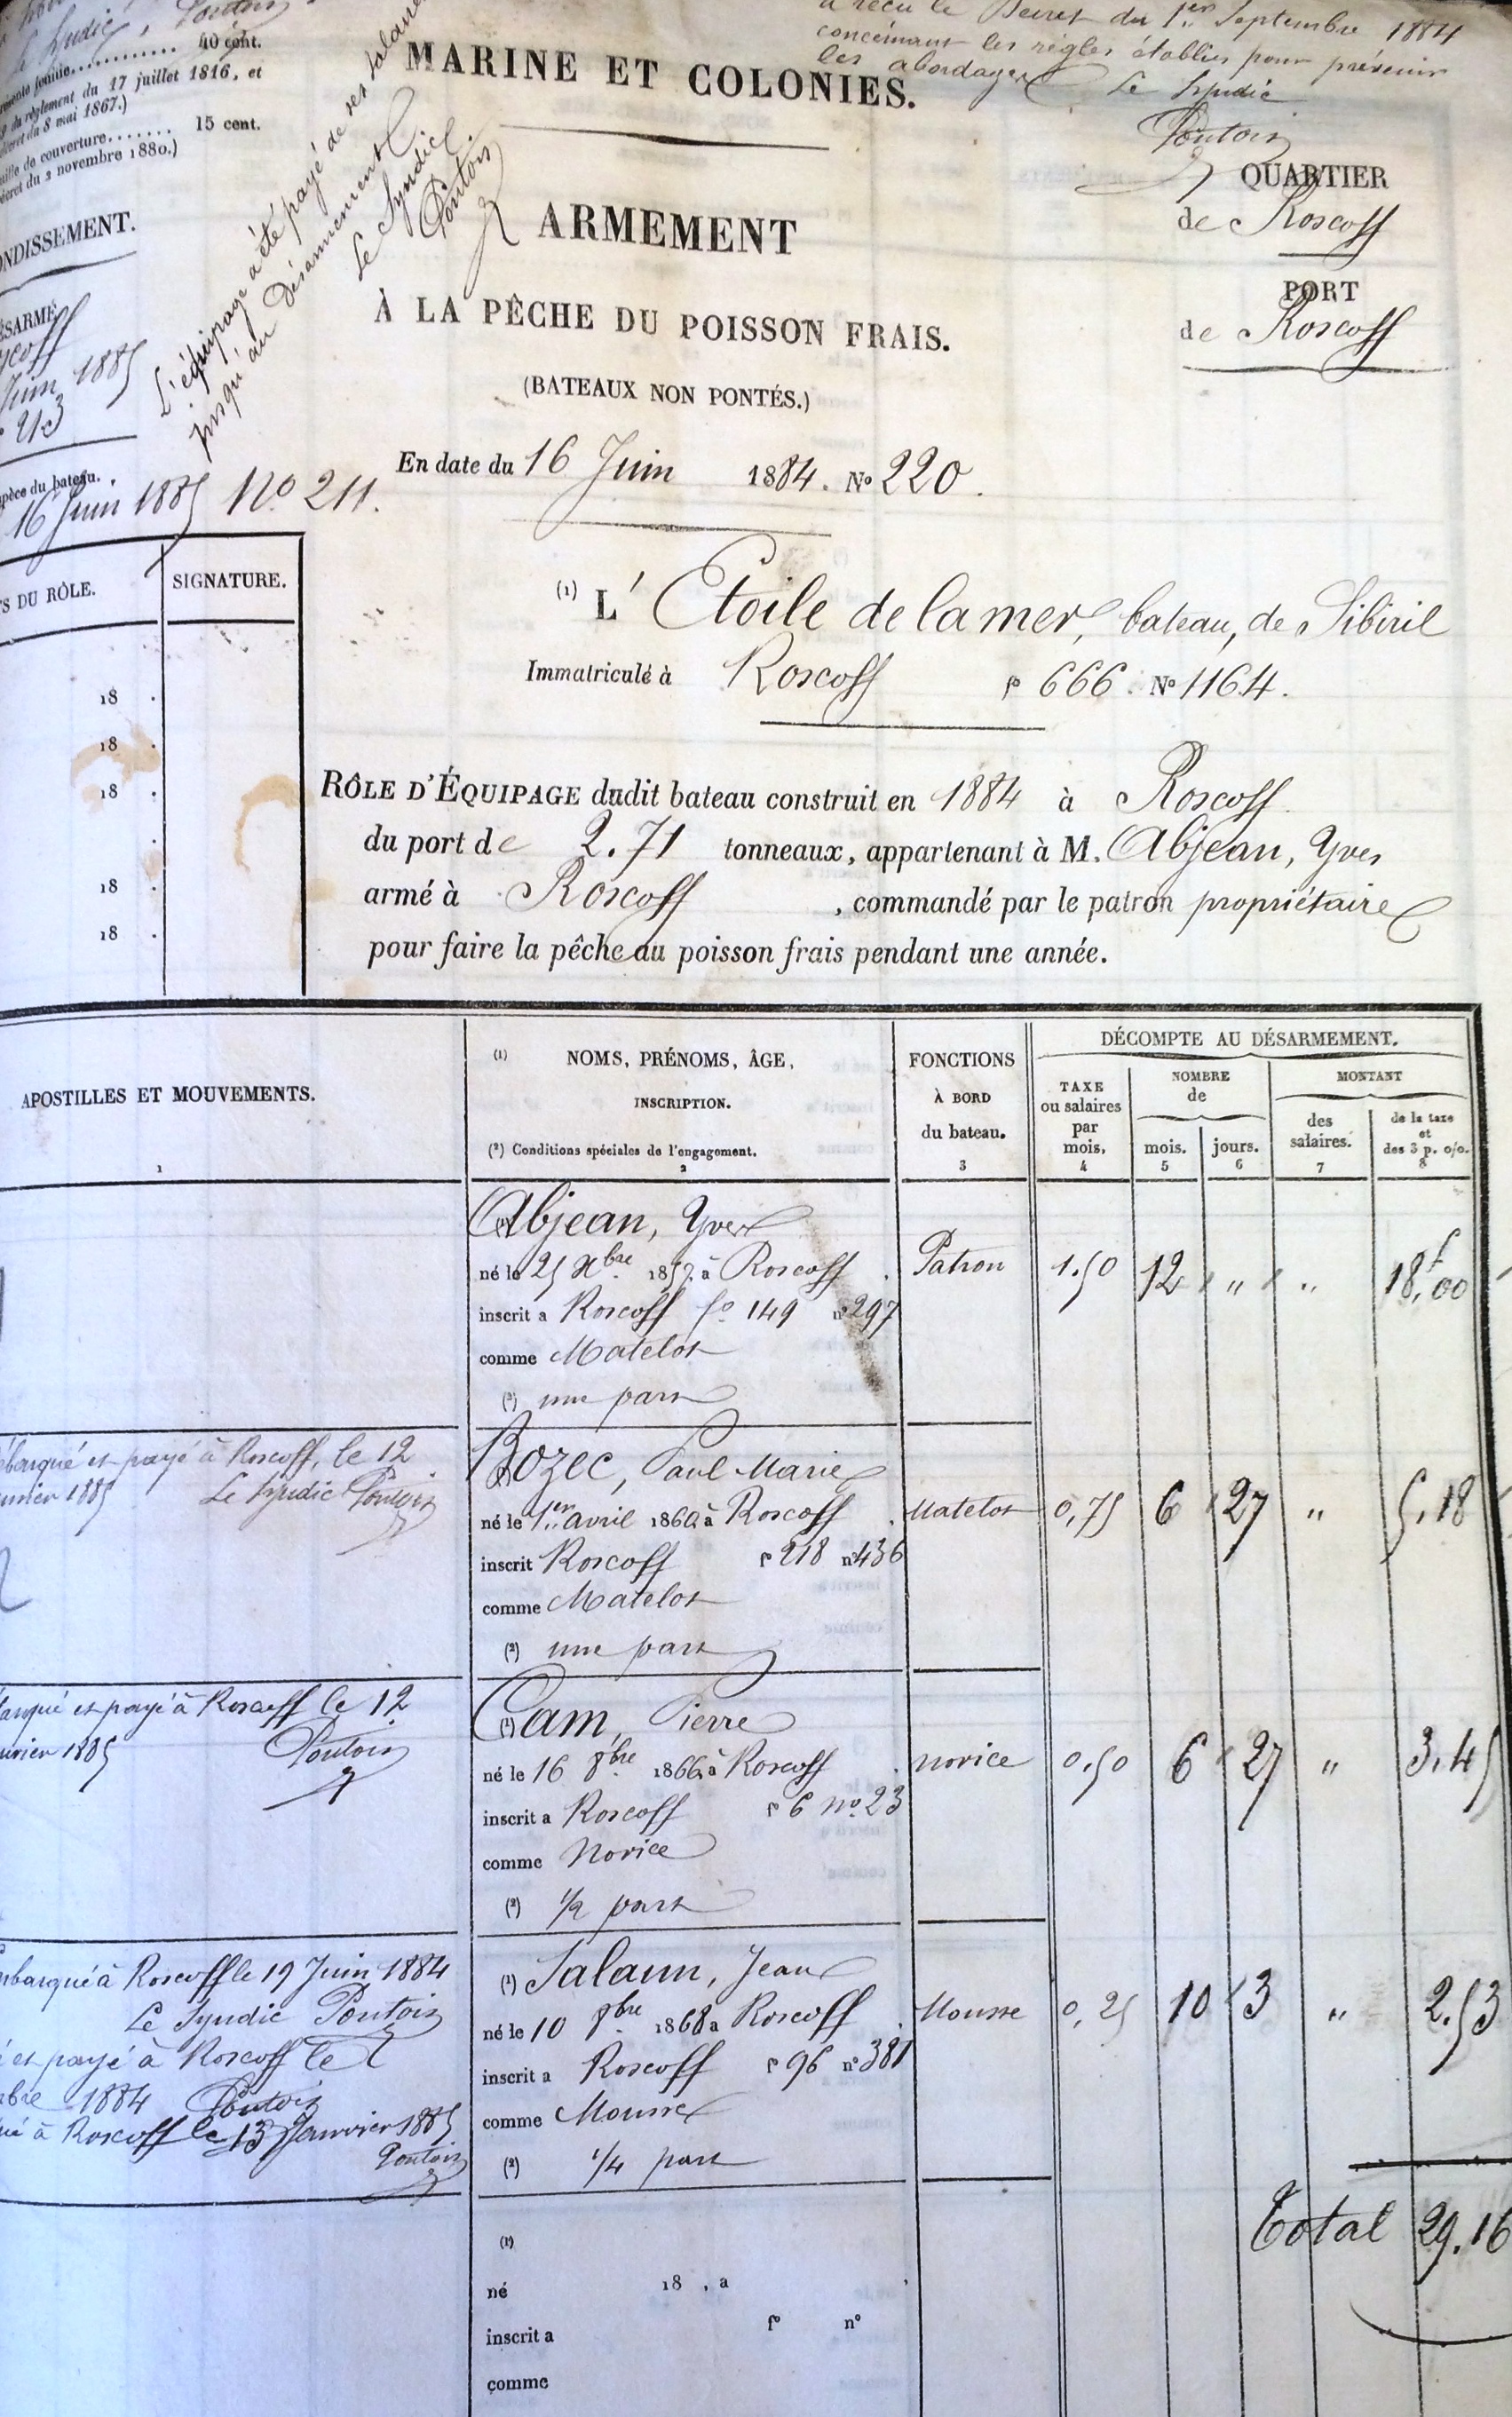 Le Syndic, Pontois
40 cent.
du règlement du 17 juillet 1816, et
décret du 8 mai 1867.)
de couverture....... 15 cent.
décret du 2 novembre 1880.)
a reçu le Décret du 1er Septembre 1884
concernant les règles établies pour prévenir
les abordages
Le Syndic
Pontois
MARINE ET COLONIES.
L'équipage a été payé de ses salaires
jusqu'au Désarmement
Le Syndic
Pontois
QUARTIER
de Roscoff
PORT
de Roscoff
ARMEMENT
À LA PÊCHE DU POISSON FRAIS.
(BATEAUX NON PONTÉS.)
En date du 16 Juin 1884. No 220.
NDISSEMENT.
SARMÉ
coff
Juin 1885
213
pèce du bateau.
16 Juin 1885 No. 211.
S DU RÔLE.
SIGNATURE.
18 .
18 .
18 .
18 .
18 .
(1) L' Etoile de la mer, bateau, de Sibiril
Immatriculé à Roscoff fo 666. No 1164.
RÔLE D'ÉQUIPAGE dudit bateau construit en 1884 à Roscoff
du port de 2.71 tonneaux, appartenant à M. Abjean, Yves
armé à Roscoff, commandé par le patron propriétaire
pour faire la pêche au poisson frais pendant une année.
APOSTILLES ET MOUVEMENTS.
1
(1) NOMS, PRÉNOMS, ÂGE,
INSCRIPTION.
(2) Conditions spéciales de l'engagement.
2
FONCTIONS
À BORD
du bateau.
3
DÉCOMPTE AU DÉSARMEMENT.
TAXE
ou salaires
par
mois.
4
NOMBRE
de
mois.
5
jours.
6
MONTANT
des
salaires.
7
de la taxe
et
des 3 p. o/o.
8
Abjean, Yves
né le 25 Xbre 1857 à Roscoff
inscrit a Roscoff fo 149 no 297
comme Matelot
(2) une part
Patron 1.50 12 " " 18f,00
ébarqué et payé à Roscoff, le 12
nvier 1885 Le Syndic Pontois
Bozec, Paul Marie
né le 1er avril 1860 à Roscoff
inscrit Roscoff fo 218 no 436
comme Matelot
(2) une part
Matelot 0,75 6 27 " 5,18
arqué et payé à Roscoff le 12
nvier 1885 Pontois
(1) Cam, Pierre
né le 16 8bre 1866 à Roscoff
inscrit a Roscoff fo 6 no 23
comme Novice
(2) 1/2 part
novice 0.50 6 27 " 3.45
mbarqué à Roscoff le 19 Juin 1884
Le Syndic Pontois
é et payé à Roscoff le
mbre 1884 Pontois
ué à Roscoff le 13 Janvier 1885
Pontois
(1) Salaun, Jean
né le 10 8bre 1868 a Roscoff
inscrit a Roscoff fo 96 no 381
comme Mousse
(2) 1/4 part
Mousse 0,25 10 3 " 2.53
Total 29.16
(1)
né 18 , a
inscrit a fo no
comme